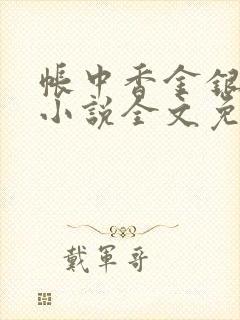 帳中香金銀
小說全文免
戴軍哥